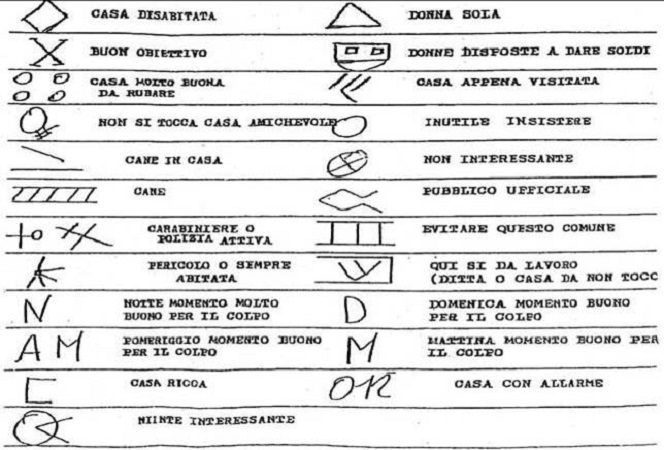 CASA DISABITATA
DONNA SOLA
BUON OBIETTIVO
DONNE DISPOSTE A DARE SOLDI
CASA MOLTO BUONA
DA RUBARE
CASA APPENA VISITATA
NON SI TOCCA CASA AMICHEVOLE
INUTILE INSISTERE
CANE IN CASA
NON INTERESSANTE
CANE
PUBBLICO UFFICIALE
CARABINIERE O
POLIZIA ATTIVA
EVITARE QUESTO COMUNE
PERICOLO O SEMPRE
ABITATA
QUI SI DA LAVORO
(DITTA O CASA DA NON TOCC
N
NOTTE MOMENTO MOLTO
BUONO PER IL COLPO
D
DOMENICA MOMENTO BUONO
PER IL COLPO
AM
POMERIGGIO MOMENTO BUONO
PER IL COLPO
M
MATTINA MOMENTO BUONO PER
IL COLPO
CASA RICCA
OK
CASA CON ALLARME
NIINTE INTERESSANTE